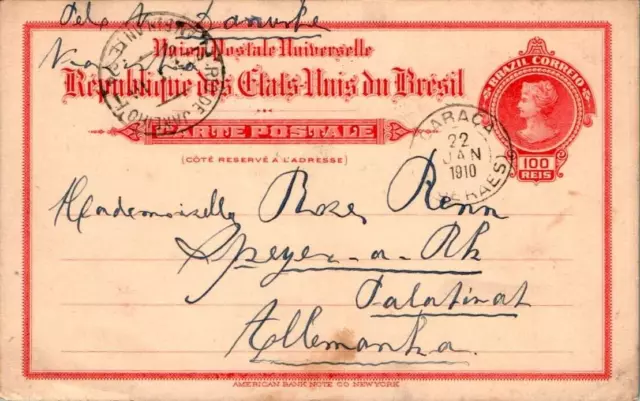 Pelo v. Danube
Via
Union Postale Universelle
République des Etats-Unis du Brésil
CARTE POSTALE
(CÔTÉ RÉSERVÉ A L'ADRESSE)
BRAZIL CORREIO
100
REIS
RIO DE JANEIRO
CARAÇA
22
JAN
1910
GERAES
Mademoiselle Rosa Renn
Speyer-a-Rh
Palatinat
Allemanha
AMERICAN BANK NOTE CO NEW YORK